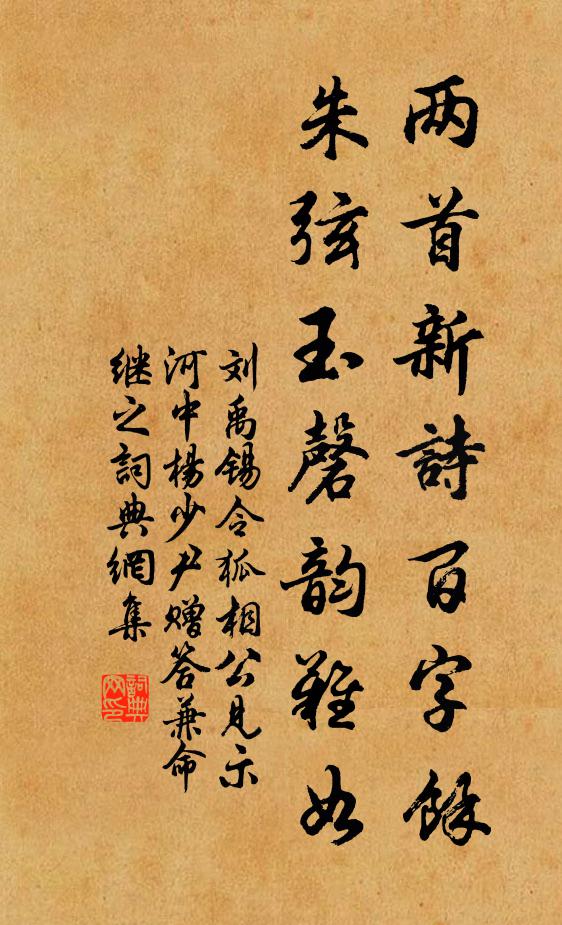 两首新詩百字餘
朱弦玉磬韵難如
刘禹锡令狐相公見示
河中楊少尹赠答兼命
继之詞典網集
詞典
网印